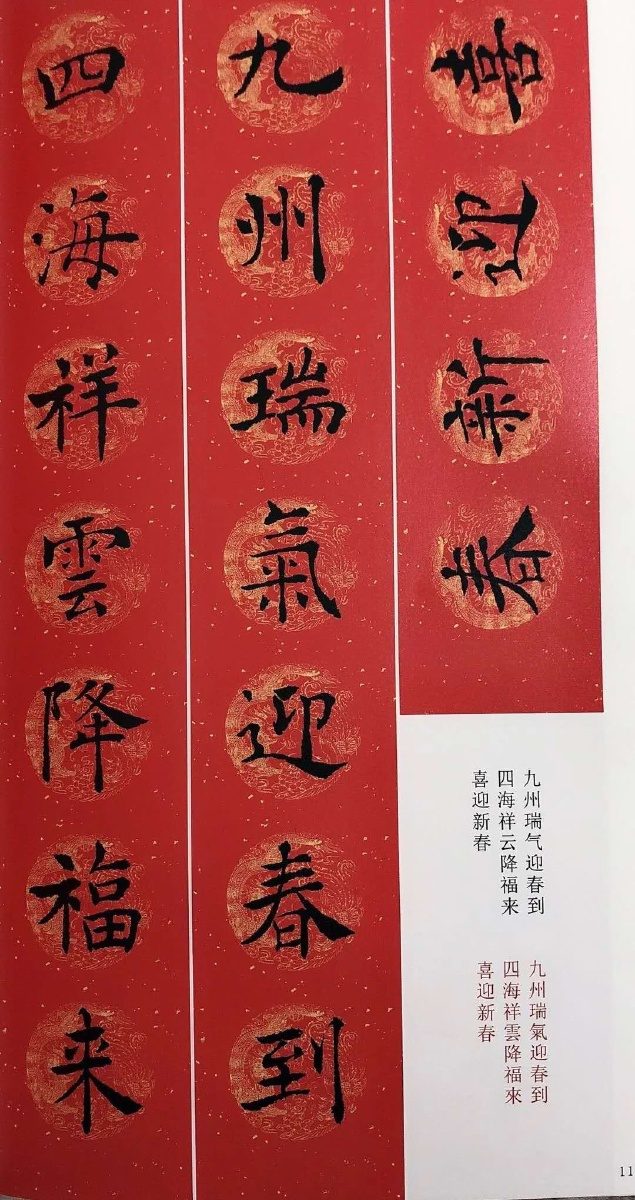 九州瑞氣迎春到
四海祥雲降福来
喜迎新春
九州瑞气迎春到
四海祥云降福来
喜迎新春
九州瑞氣迎春到
四海祥雲降福來
喜迎新春
11